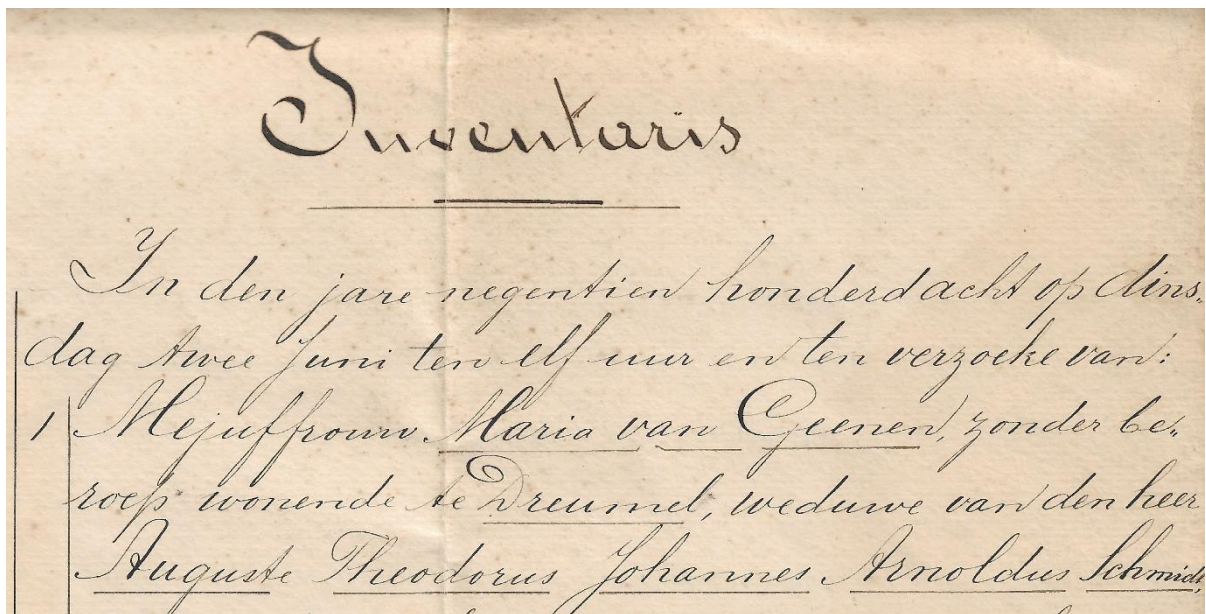 Inventaris
In den jare negentien honderd acht op dins-
dag twee Juni ten elf uur en ten verzoeke van:
1 Mejuffrouw Maria van Geenen, zonder be-
roep wonende te Dreumel, weduwe van den heer
Auguste Theodorus Johannes Arnoldus Schmidt,